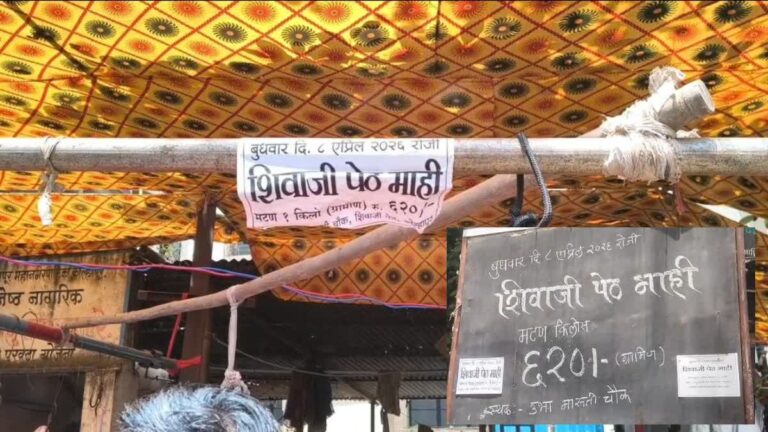 बुधवार दि. ८ एप्रिल २०२६ रोजी
शिवाजी पेठ माही
मटण १ किलो (ग्रामीण) रु. ६२०/-
चौक, शिवाजी पेठ, कोल्हापूर
नागरिक
बुधवार दि ८ एप्रिल २०२६ रोजी
शिवाजी पेठ माही
मटण किलोस
६२०/- (ग्रामिण)
स्थळ :- उभा मारुती चौक
शिवाजी पेठ माही
शिवाजी पेठ माही